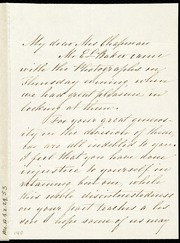 My dear Mrs Chapman
Mr E. L. Baker came
with the Photographs on
Thursday evening when
we had great pleasure in
looking at them.
For your great generos-
ity in the decision of them,
we are all indebted to you.
I feel that you have done
injustice to yourself in
retaining but one, while
this noble disinterestedness
on your part teaches a les-
son I hope some of us may